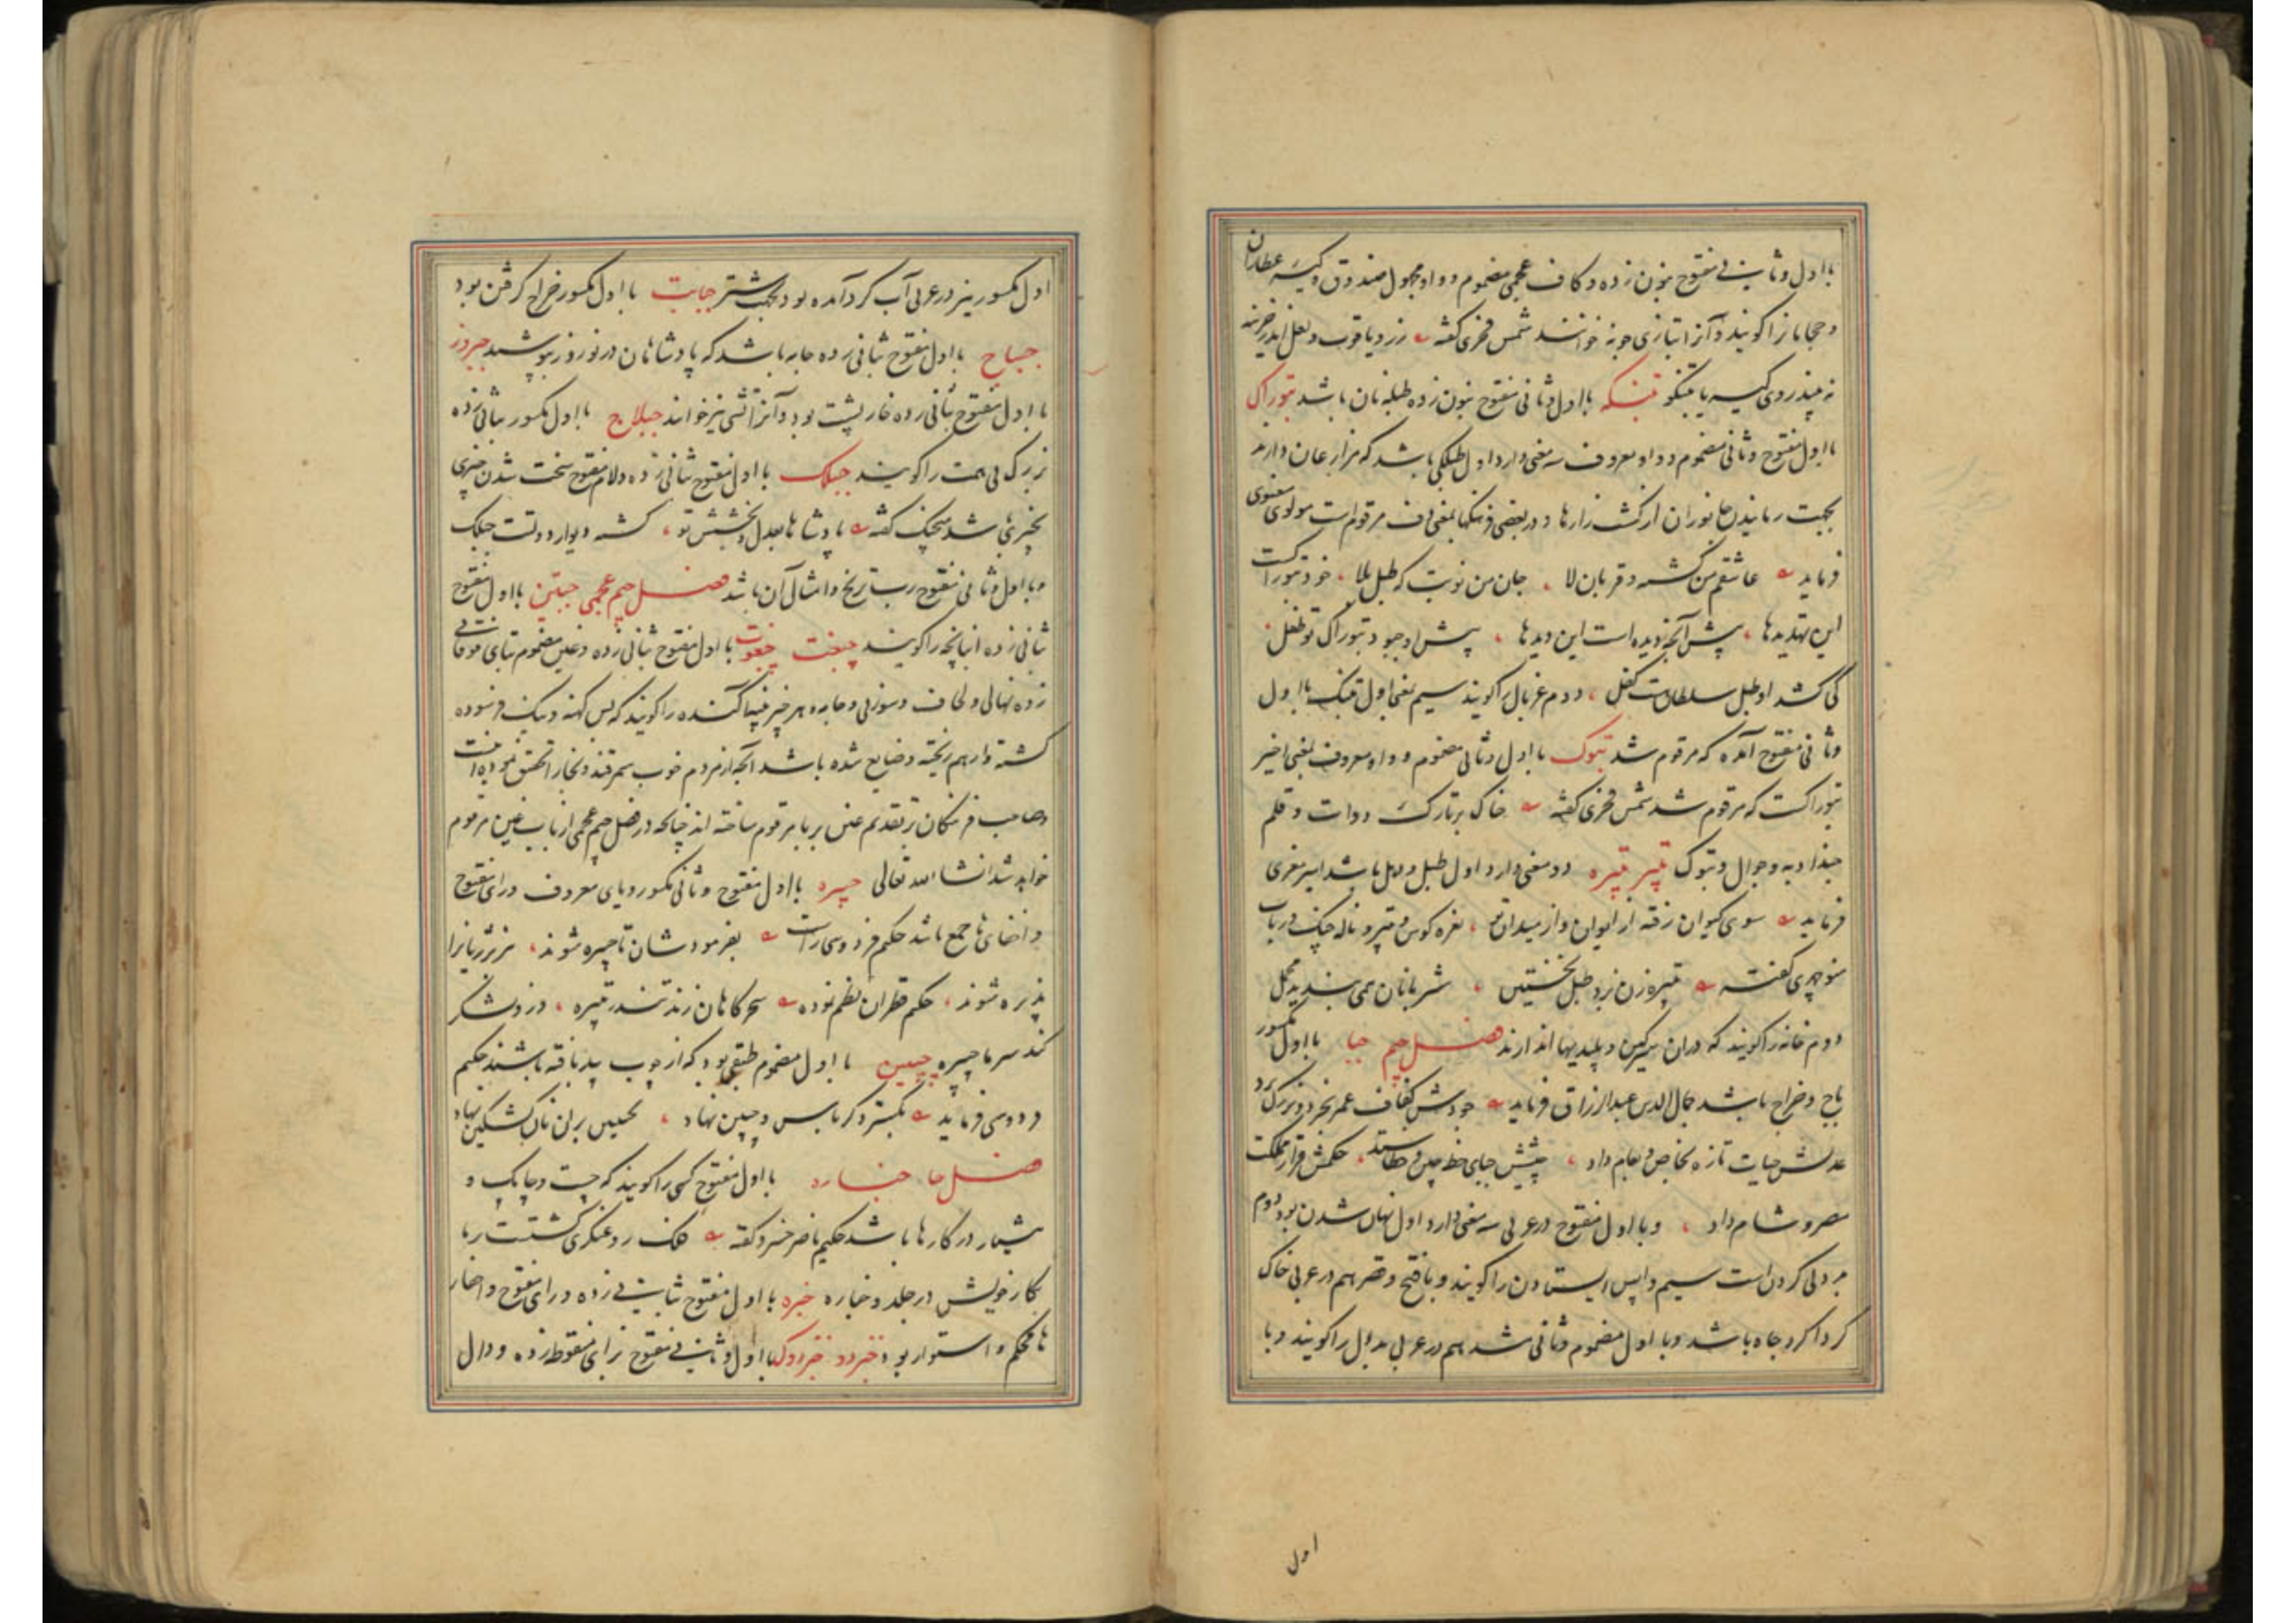 با اول و ثانی مفتوح بنون زده و کاف عجمی مضموم و واو مجهول صندوق و کیسه عطاران
و حجامان را گویند و آنرا بتازی جونه خوانند شمس فخری گفته زر و یاقوت و لعل اندر خزینه
نه بیند روی کیسه یا تبنکو تبنکه با اول و ثانی مفتوح بنون زده طبله نان باشد تبوراک
با اول مفتوح و ثانی مضموم و واو معروف سه معنی دارد اول طبلکی باشد که مزارعان دارند
بجهت رمانیدن جانوران از کشت زارها و در بعضی فرهنگها بمعنی دف مرقوم است مولوی معنوی
فرماید عاشقم من کشته و قربان لا جان من نوبت که طبل بلا خود تبوراکست
این تهدیدها پیش آنچه دیده است این دیدها پیش او چبود تبوراک تو طفل
کی کشد او طبل سلطان بیست کفل دوم غربال را گویند سیم بمعنی اول تبنک با اول
و ثانی مفتوح آمده که مرقوم شد تبوک با اول و ثانی مضموم و واو معروف بمعنی اخیر
تبوراکست که مرقوم شد شمس فخری گفته خاک بر تارک دوات و قلم
حبذا دبه و جوال و تبوک تبیر تبیره دو معنی دارد اول طبل و دهل باشد امیر معزی
فرماید سوی کیوان رفته از ایوان و از میدان تو نعره کوس و تبیر و ناله چنک و رباب
منوچهری گفته تبیره زن بزد طبل نخستین شتربانان همی بندند محمل
دوم خانه را گویند که در آن سرگین و پلیدیها اندازند فصل جیم جبا با اول مکسور
باج و خراج باشد جمال الدین عبدالرزاق فرماید جودش کفاف عمر بخرد و بزرگ داد
عدلش حیات تازه بخاص و بعام داد جیشش جبای خطه چین و خطا ستد حکمش قرار مملکت
مصر و شام داد و با اول مفتوح در عربی سه معنی دارد اول نهان شدن بود دوم
بردلی کردن است سیم واپس ایستادن را گویند و با فتح و قصر هم در عربی خاک
کرداکرد چاه باشد و با اول مضموم و ثانی مشدد هم در عربی بددل را گویند و با
اول
اول مکسور نیز در عربی آب گرد آمده بود بجهت شتر جبایت با اول مکسور خراج گرفتن بود
جبساج با اول مفتوح بثانی زده جامه باشد که پادشاهان در نوروز پوشند جبروز
با اول مفتوح بثانی زده خارپشت بود و آنرا تشی نیز خوانند جبلاج با اول مکسور بثانی زده
بزرک بی همت را گویند جبلک با اول مفتوح بثانی زده و لام مفتوح سخت شدن چیزی
بچیزی باشد منجیک گفته پادشاها بعدل و بخشش تو گشته دیوار دولتت جبلک
و با اول و ثانی مفتوح و امثال آن باشد فصل جیم عجمی چبین با اول مفتوح
بثانی زده انبانچه را گویند چبغت چبغوت با اول مفتوح بثانی زده و غین مضموم بتای فوقانی
زده نهالی و لحاف و سوزنی و جامه و هر چیز پنبه آکنده را گویند که بس کهنه و نیک فرسوده
گشته و از هم ریخته و ضایع شده باشد آنچه از مردم خوب سمرقند و بخارا تحقیق نموده اینست
و صاحب فرهنگان بتقدیم غین بر با مرقوم ساخته اند چنانکه در فصل جیم عجمی از باب غین مرقوم
خواهد شد انشاء الله تعالی چبیره با اول مفتوح و ثانی مکسور و یای معروف و رای مفتوح
و اخفای ها جمع باشد حکیم فردوسی راست بفرمودشان تا چبیره شوند هزبر ژیان را
پذیره شوند حکیم قطران نظم نموده سحرگاهان زند تندر تبیره
کند سرما چبیره چبین با اول مضموم طبقی بود که از چوب بید بافته باشند حکیم
فردوسی فرماید بگسترد کرباس و چبین نهاد بچبین بر آن نان کشکین نهاد
فصل خا خباره با اول مفتوح کسی را گویند که چست و چابک و
هشیار در کارها باشد حکیم ناصر خسرو گفته
بکار خویش در جلد و خباره خبره با اول مفتوح بثانی زده و رای مفتوح و اخفاء
ها محکم و استوار بود خبزدو خبزدوک با اول و ثانی مفتوح بزای منقوطه زده و دال